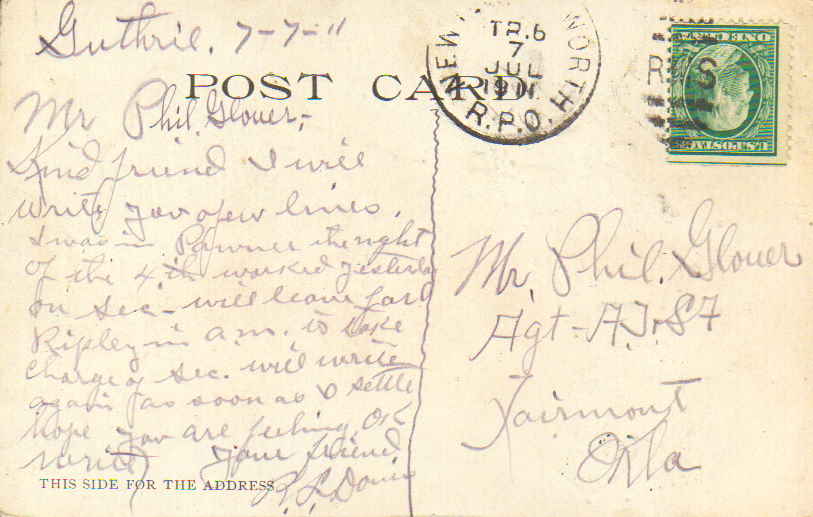 Guthrie. 7-7-11
POST CARD
Mr Phil. Glover,-
Kind friend I will
write you a few lines.
I was in Pawnee the night
of the 4th worked yesterday
on Sec- will leave for
Ripley in a.m. to take
charge of Sec. will write
again as soon as I settle
hope you are feeling OK
write Your friend
R. L. Davis
THIS SIDE FOR THE ADDRESS
NEW WORTH
TR.6
7
JUL
1911
R.P.O.
ONE CENT
U.S. POSTAGE
RMS
Mr, Phil. Glover
Agt - A.T. & S.F
Fairmont
Okla